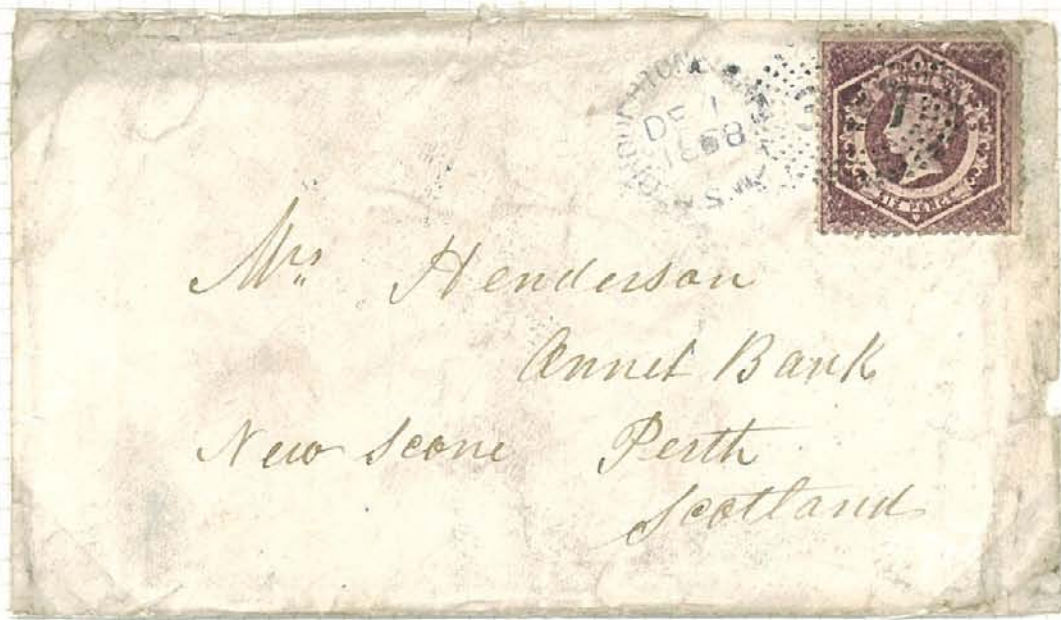 DE 1
1868
N.S.W
SIX PENCE
Mrs Henderson
Annet Bank
New Scone Perth
Scotland